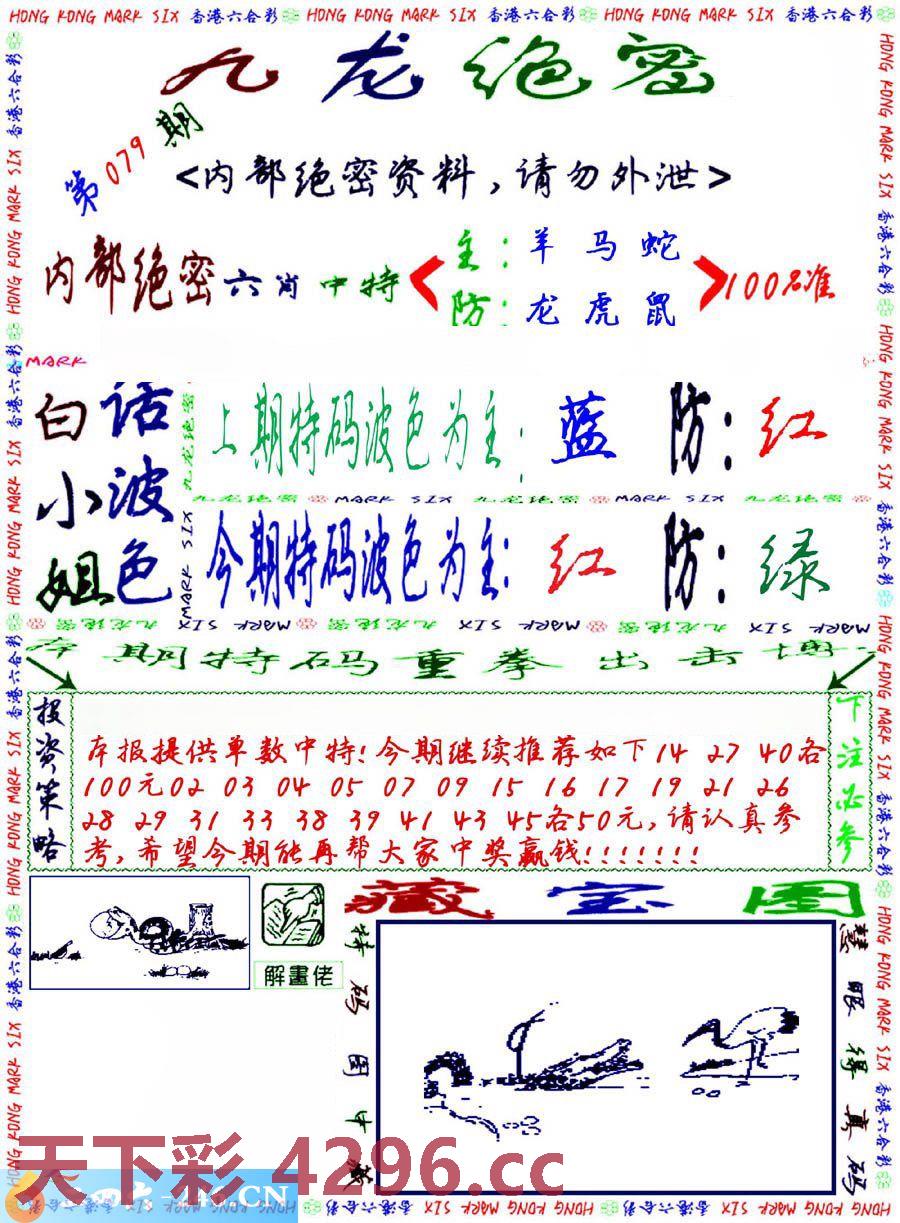 HONG KONG MARK SIX 香港六合彩 HONG KONG MARK SIX 香港六合彩 HONG KONG MARK SIX 香港六合彩
九龙绝密
第079期
<内部绝密资料,请勿外泄>
内部绝密六肖中特
主:羊马蛇
防:龙虎鼠
100%准
MARK
白小姐
话波色
上期特码波色为主:蓝 防:红
九龙绝密 MARK SIX 九龙绝密 MARK SIX 九龙绝密
今期特码波色为主:红 防:绿
MARK SIX 九龙绝密 MARK SIX 九龙绝密 MARK SIX 九龙绝密
期特码重拳出击
投资策略
本报提供单数中特!今期继续推荐如下14 27 40各
100元02 03 04 05 07 09 15 16 17 19 21 26
28 29 31 33 38 39 41 43 45各50元,请认真参
考,希望今期能再帮大家中奖赢钱!!!!!!!
下注必参
解畫佬
藏宝图
特码图中藏
慧眼得真码
天下彩 4296.cc